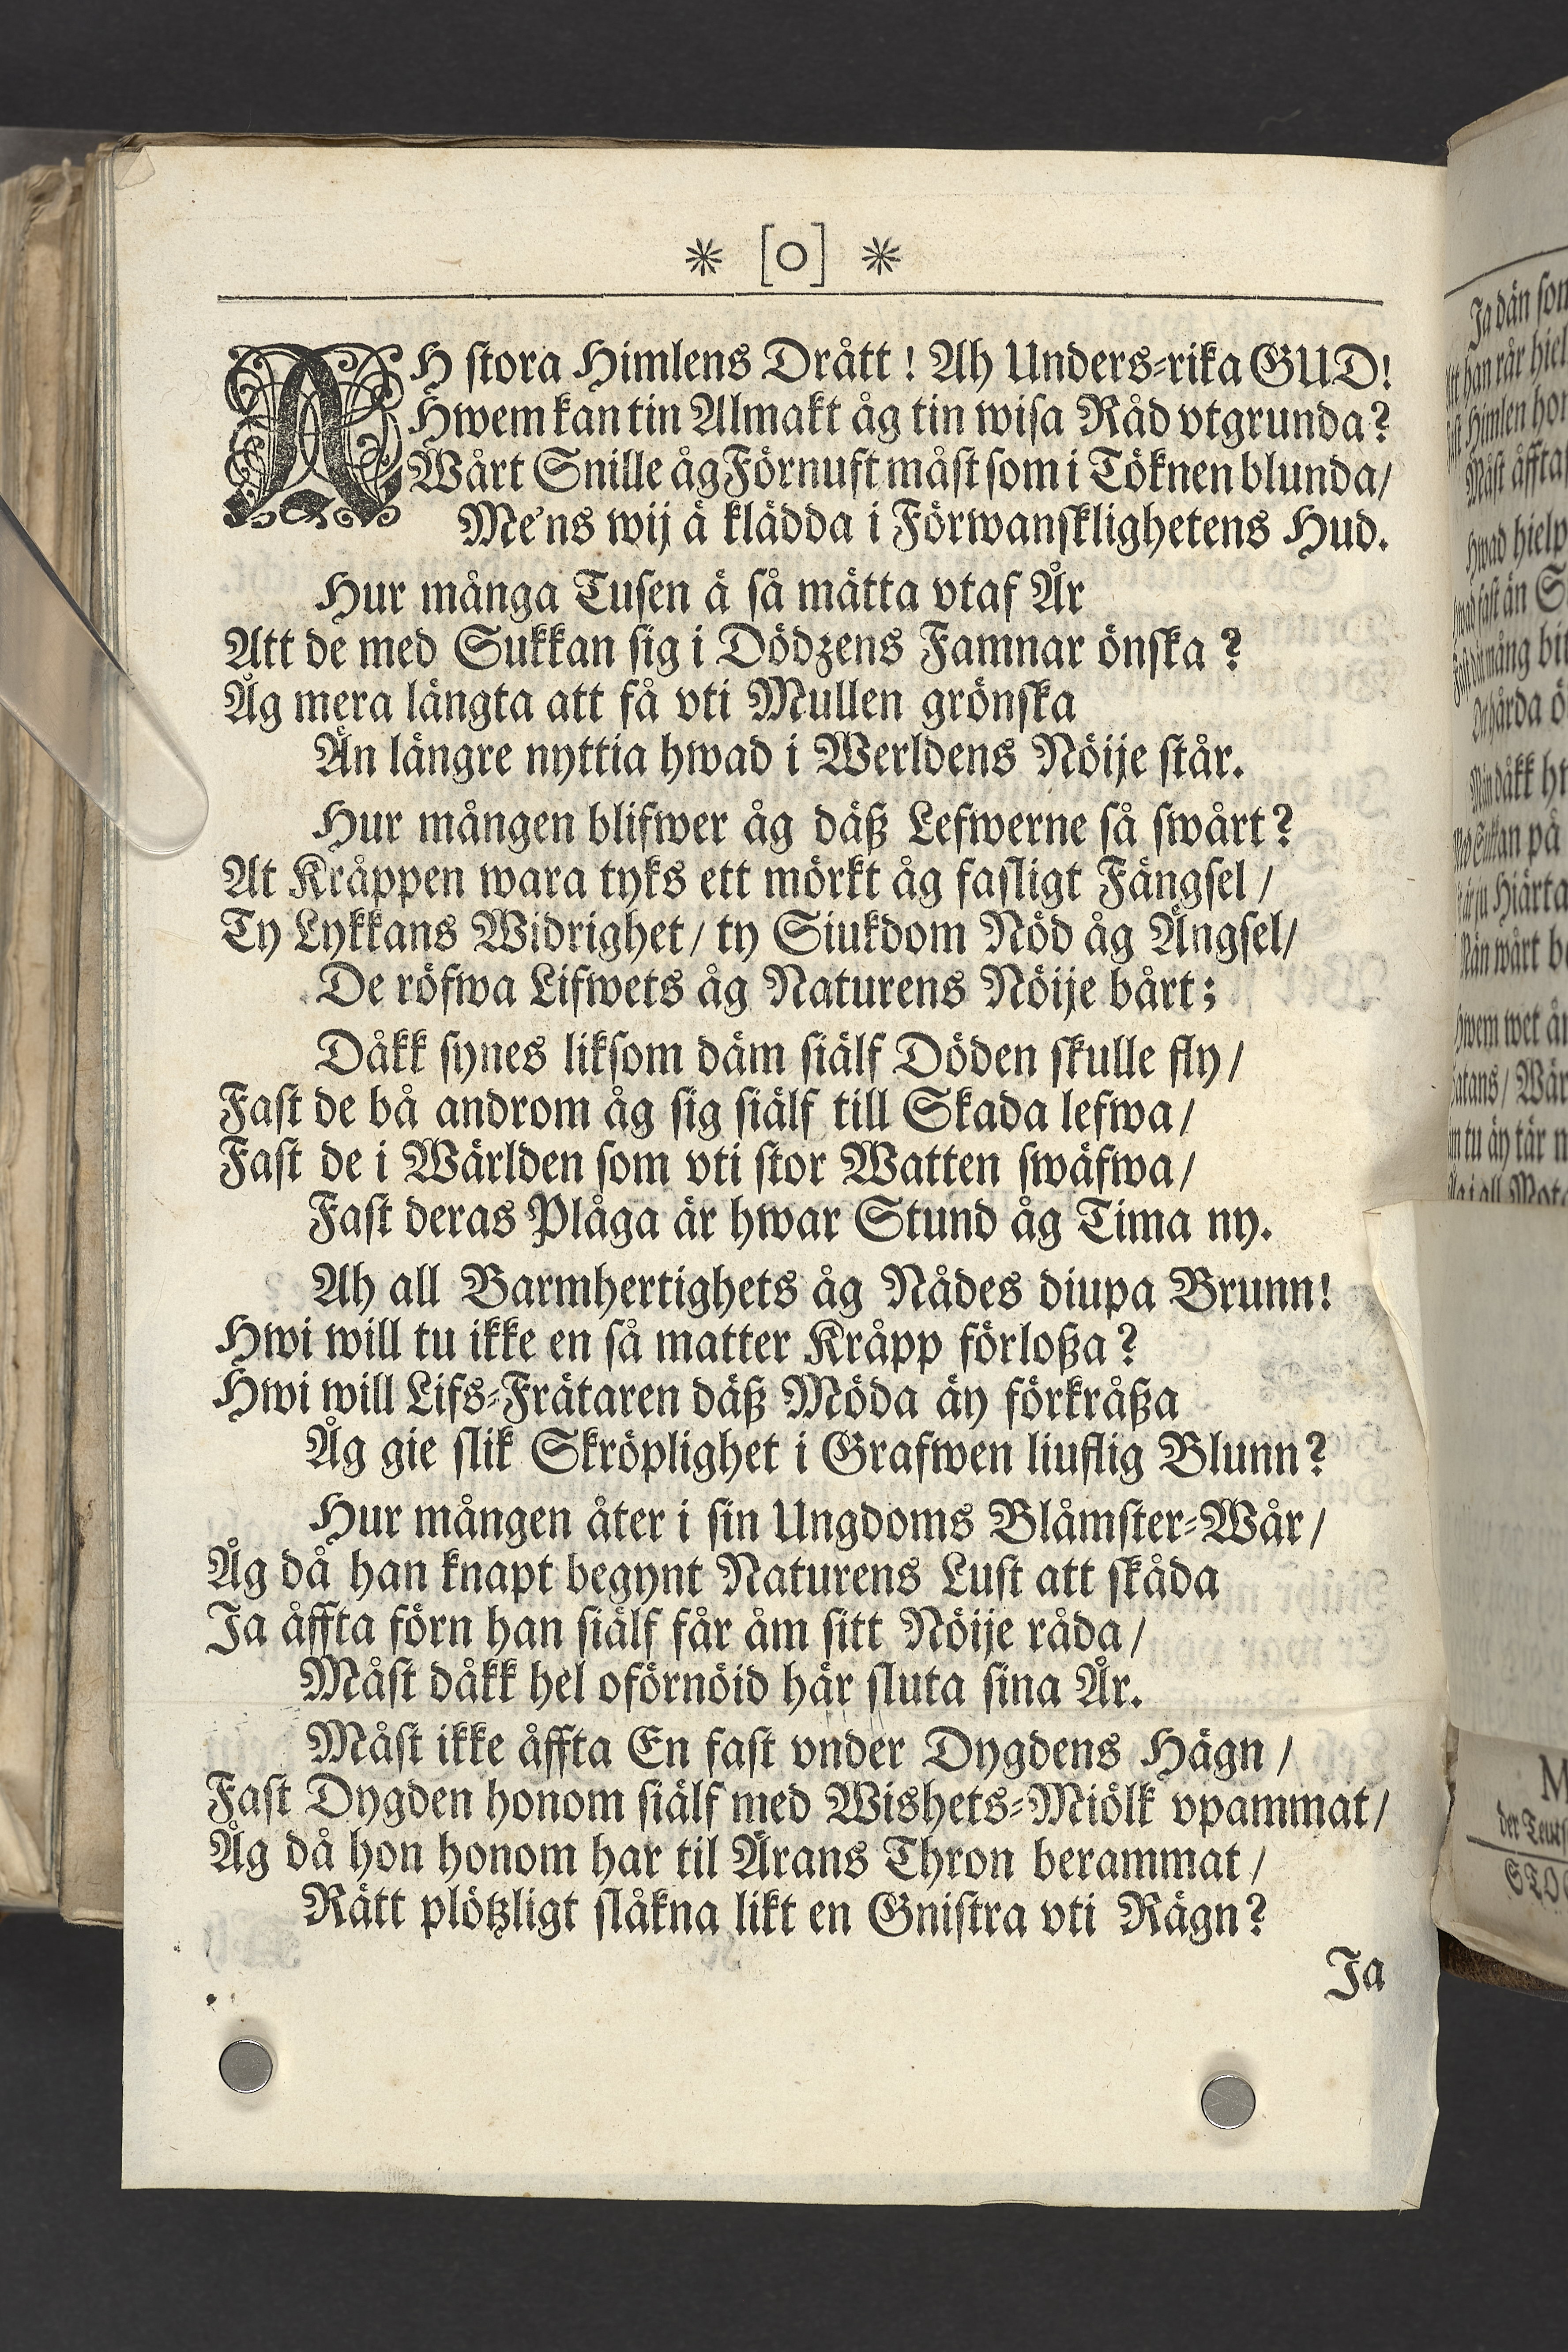 * [o] *
AH stora Himlens Drått! Ah Unders-rika GUD!
Hwem kan tin Almakt åg tin wisa Råd vtgrunda?
Wårt Snille åg Förnuft måst som i Töknen blunda/
Me'ns wij ä klädda i Förwansklighetens Hud.
Hur många Tusen ä så mätta vtaf År
Att de med Sukkan sig i Dödzens Famnar önska?
Åg mera längta att få vti Mullen grönska
Än längre nyttia hwad i Werldens Nöije står.
Hur mången blifwer åg däß Lefwerne så swårt?
At Kråppen wara tyks ett mörkt åg fasligt Fängsel/
Ty Lykkans Widrighet/ ty Siukdom Nöd åg Ängsel/
De röfwa Lifwets åg Naturens Nöije bårt;
Dåkk synes liksom däm siälf Döden skulle fly/
Fast de bå androm åg sig siälf till Skada lefwa/
Fast de i Wärlden som vti stor Watten swäfwa/
Fast deras Plåga är hwar Stund åg Tima ny.
Ah all Barmhertighets åg Nådes diupa Brunn!
Hwi will tu ikke en så matter Kråpp förloßa?
Hwi will Lifs-Frätaren däß Möda äy förkråßa
Åg gie slik Skröplighet i Grafwen liuflig Blunn?
Hur mången åter i sin Ungdoms Blåmster-Wår/
Åg då han knapt begynt Naturens Lust att skåda
Ja åffta förn han siälf får åm sitt Nöije råda/
Måst dåkk hel oförnöid här sluta sina År.
Måst ikke åffta En fast vnder Dygdens Hägn/
Fast Dygden honom siälf med Wishets-Miölk vpammat/
Åg då hon honom har til Ärans Thron berammat/
Rätt plötzligt slåkna likt en Gnistra vti Rägn?
Ja